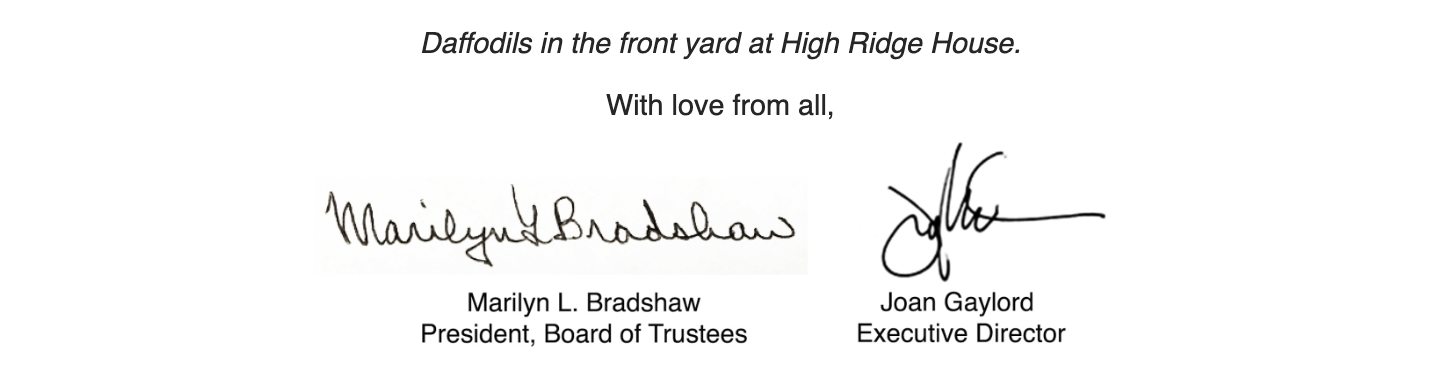 Daffodils in the front yard at High Ridge House.
With love from all,
Marilyn L Bradshaw
Marilyn L. Bradshaw
President, Board of Trustees
Joan Gaylord
Executive Director